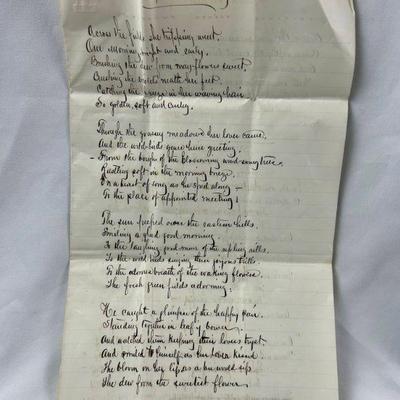 Across the fields she tripping went,
One morning bright and early,
Brushing the dew from may-flowers sweet,
Crushing the violets neath her feet,
Catching the breeze in her waving hair
So golden, soft and curly.
Through the growing meadows her lover came,
And the wild-birds gave him greeting,
From the bough of the blossoming wind-swung tree,
Rustling soft in the morning breeze,
as he sped along
To the place of appointed meeting;
The sun peeped over the eastern hills
Smiling a glad good morning
To the laughing good morn of the rippling rills
To the wild birds singing their joyous trills
To the odorous breath of the waking flowers
The fresh green fields adorning;
He caught a glimpse of the happy pair
Standing together in leafy bower
And watched them keeping their lovers tryst
And smiled to himself as the lover kissed
The bloom on her lips as a bee would sip
The dew from the sweetest flower